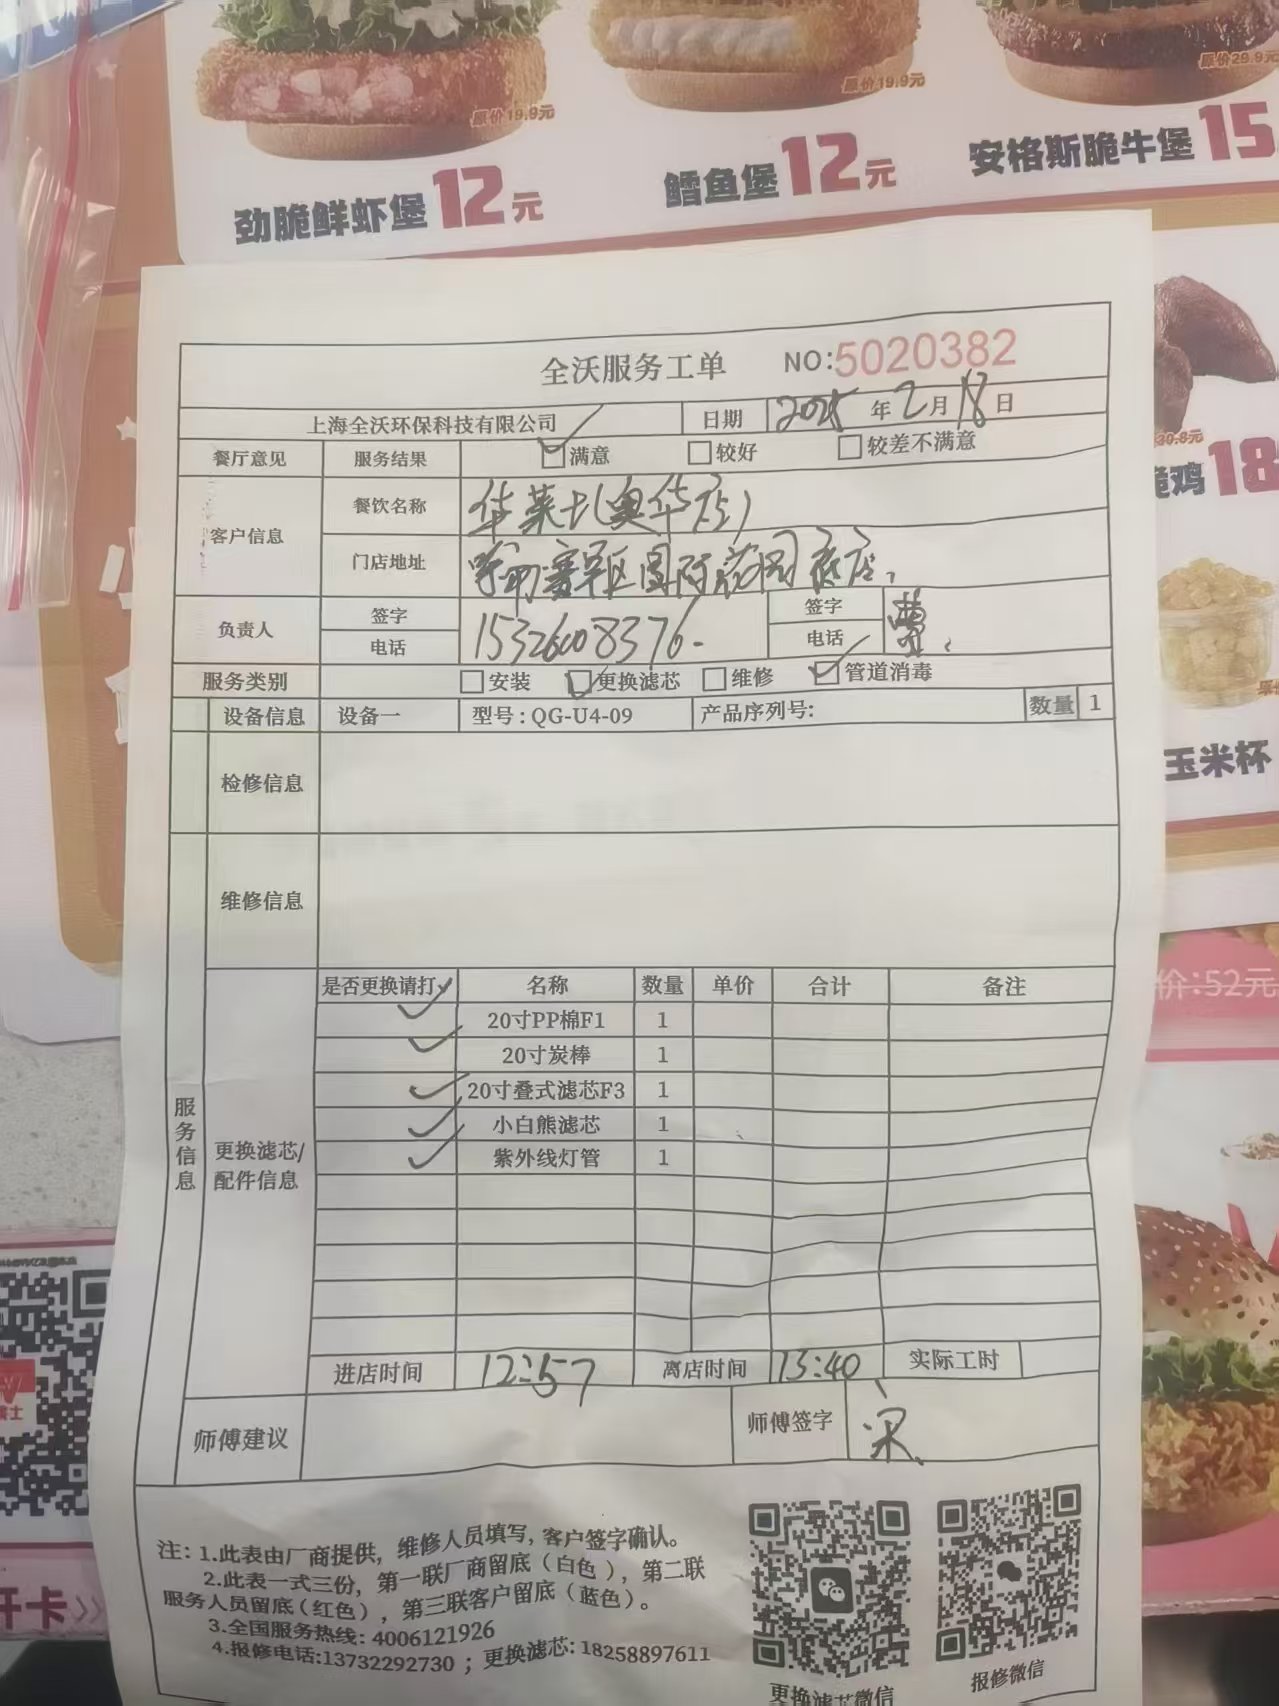 原价19.9元
原价19.9元
原价29.9元
劲脆鲜虾堡12元
鳕鱼堡12元
安格斯脆牛堡15
全沃服务工单 NO:5020382
上海全沃环保科技有限公司 日期 2025年2月18日
餐厅意见 服务结果 满意 较好 较差不满意
客户信息 餐饮名称 华莱士(奥华店)
门店地址 赛罕区国际花园底店
负责人 签字 签字
电话 15326008376 电话
服务类别 安装 更换滤芯 维修 管道消毒
设备信息 设备一 型号:QG-U4-09 产品序列号: 数量 1
检修信息
维修信息
服务信息
更换滤芯/配件信息
是否更换请打✓ 名称 数量 单价 合计 备注
✓ 20寸PP棉F1 1
✓ 20寸炭棒 1
✓ 20寸叠式滤芯F3 1
✓ 小白熊滤芯 1
✓ 紫外线灯管 1
进店时间 12:57 离店时间 13:40 实际工时
师傅建议 师傅签字 宋
注: 1.此表由厂商提供，维修人员填写，客户签字确认。
2.此表一式三份，第一联厂商留底（白色），第二联
服务人员留底（红色），第三联客户留底（蓝色）。
3.全国服务热线: 4006121926
4.报修电话:13732292730 ；更换滤芯: 18258897611
更换滤芯微信
报修微信
脆鸡18
玉米杯
价:52元
开卡